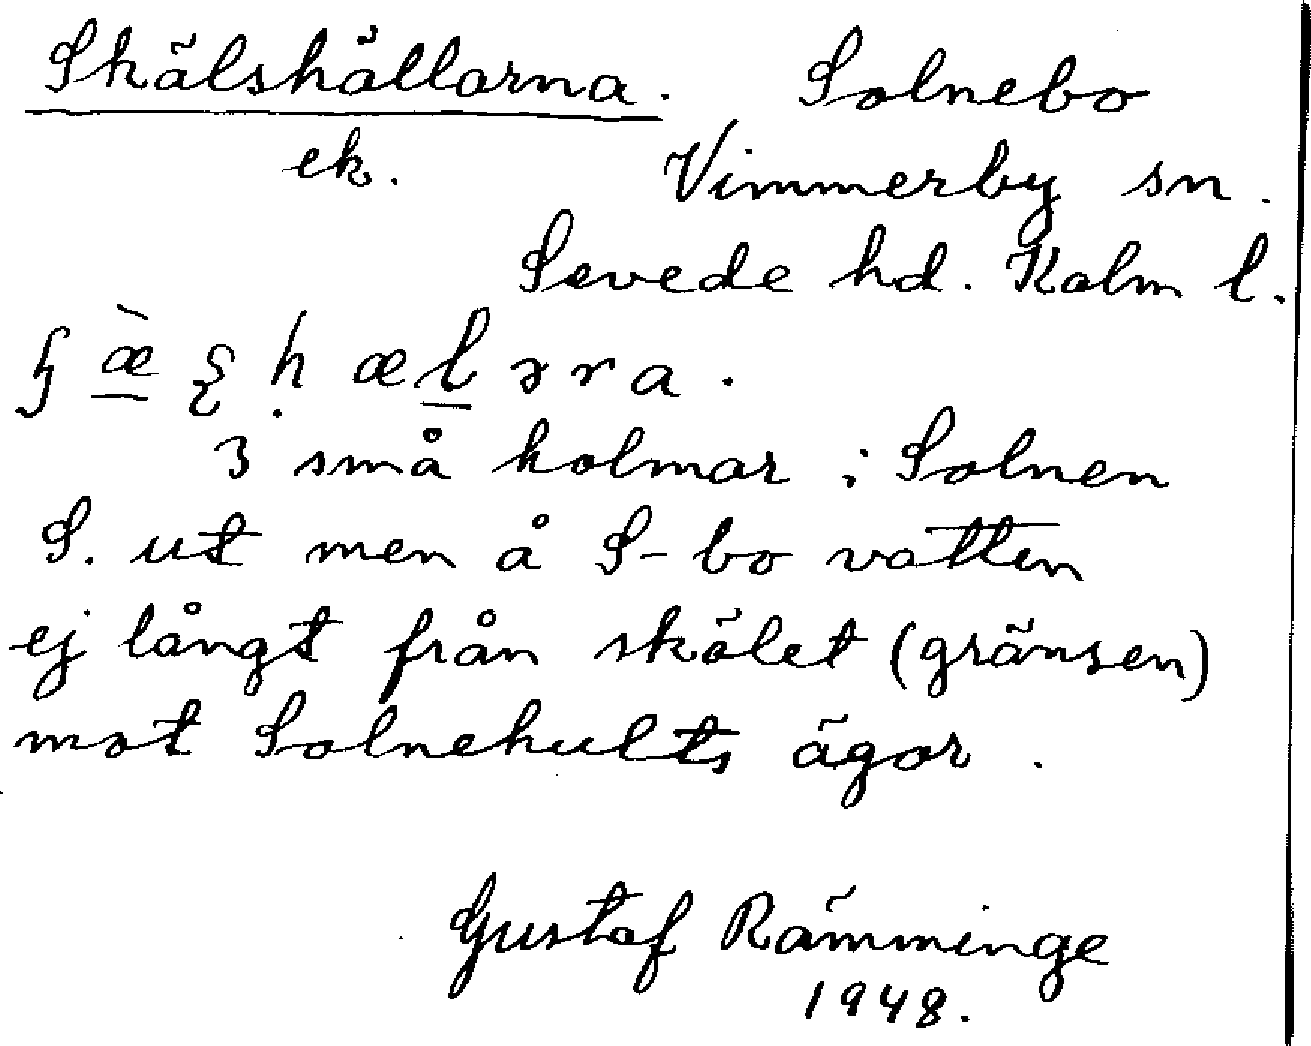 Skälshällarna. Solnebo
ek. Vimmerby sn.
Sevede hd. Kalm l.
3 små holmar i Solnen
S. ut men å S-bo vatten
ej långt från skälet (gränsen)
mot Solnehults ägor.
Gustaf Rämminge
1948.